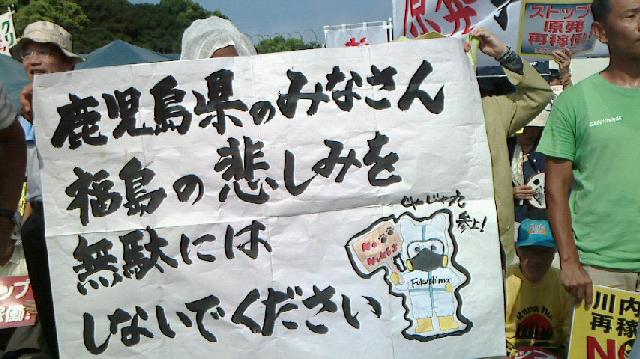 鹿児島県のみなさん
福島の悲しみを
無駄には
しないでください
じゃじゃっと
参上!
No
NUKES
Fukushima
原発
ストップ
原発
再稼働
ストップ
川内
再稼
NO